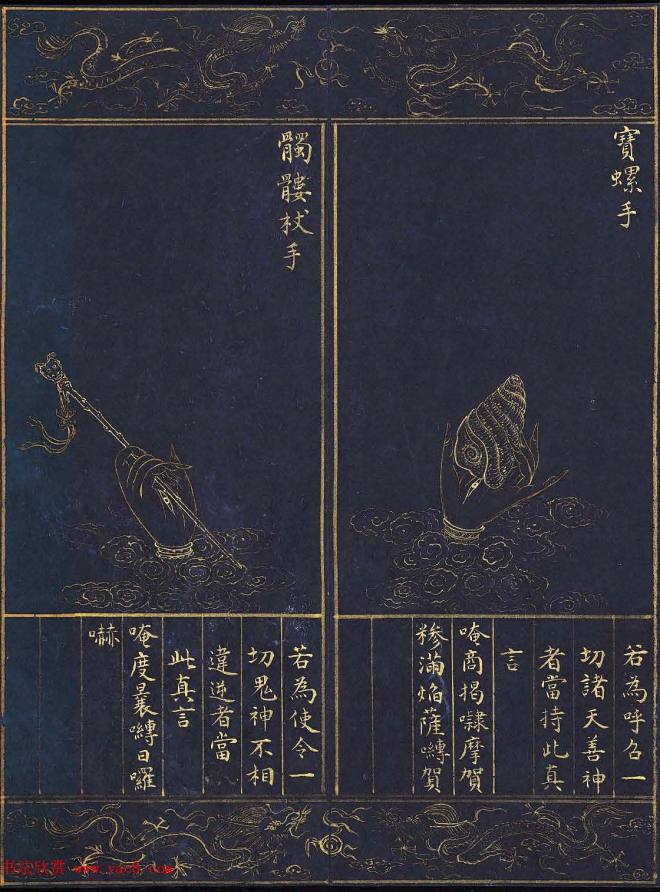 寶螺手
若為呼召一
切諸天善神
者當持此真
言
唵商揭隸摩賀
糝滿焰薩嚩賀
髑髏杖手
若為使令一
切鬼神不相
違逆者當
此真言
唵度曩嚩日囉
嚇
书法欣赏 www.yac8.com